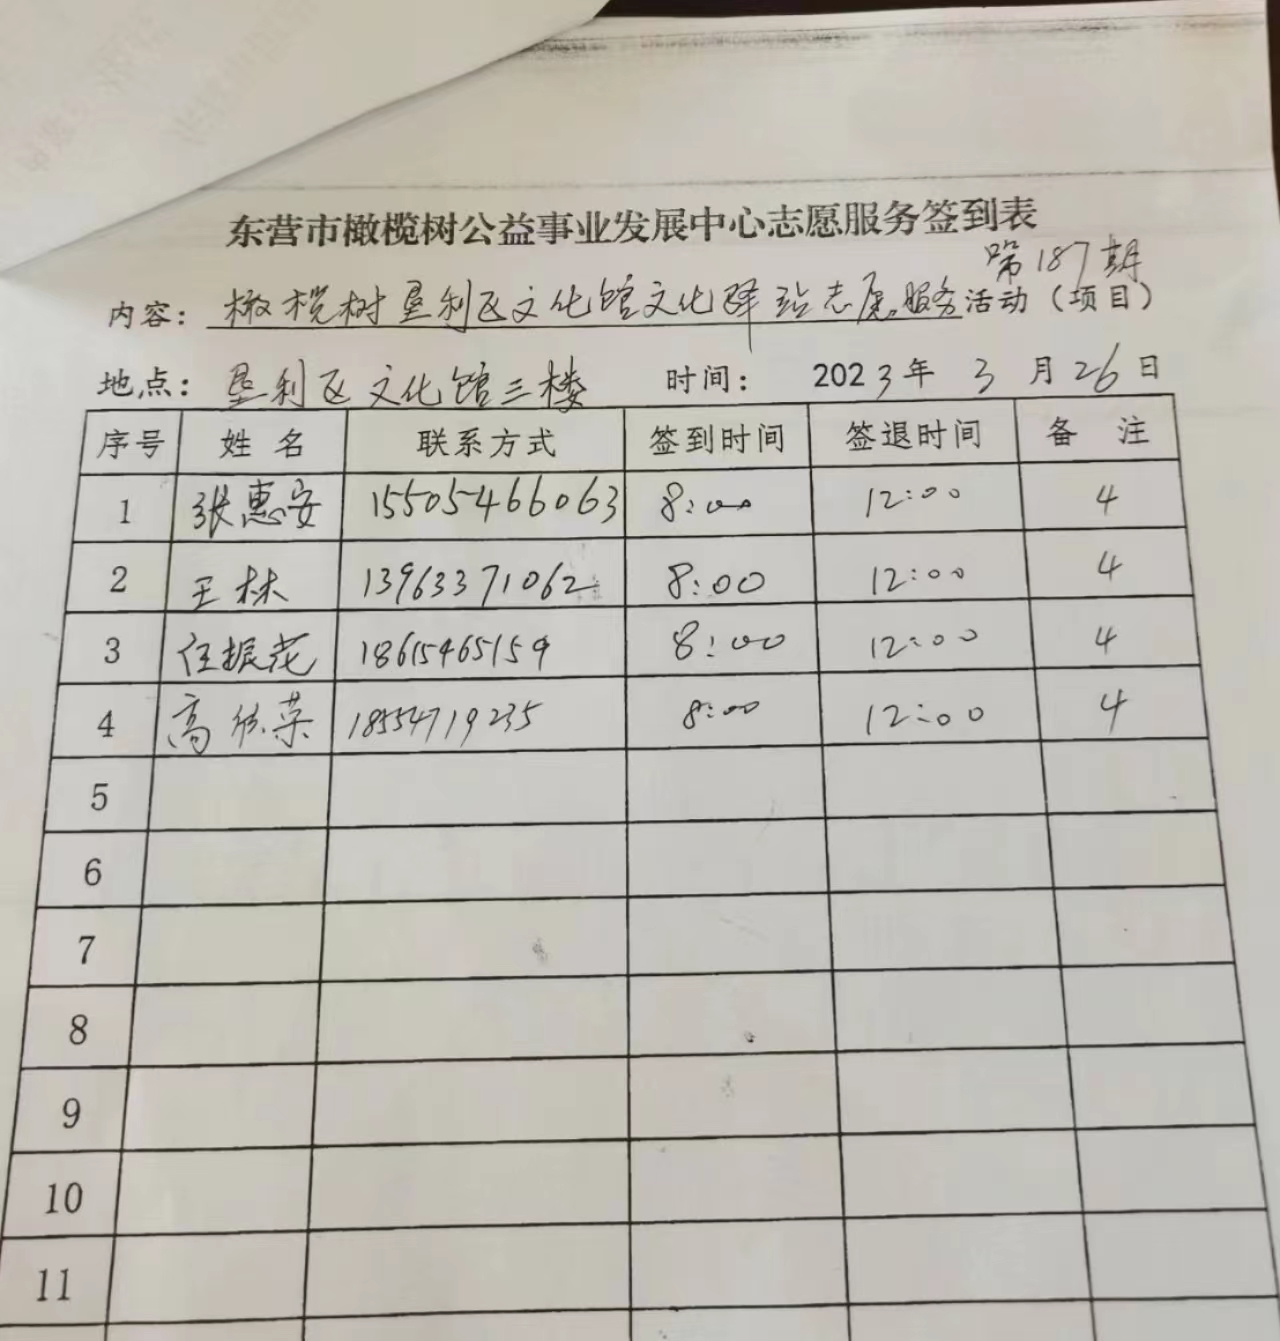 东营市橄榄树公益事业发展中心志愿服务签到表
第187期
内容：橄榄树垦利区文化馆文化驿站志愿服务活动（项目）
地点：垦利区文化馆三楼 时间：2023年3月26日
序号 姓名 联系方式 签到时间 签退时间 备注
1 张惠安 15505466063 8:00 12:00 4
2 王林 13963371062 8:00 12:00 4
3 任振花 18615465159 8:00 12:00 4
4 高 菜 18554719235 8:00 12:00 4
5
6
7
8
9
10
11